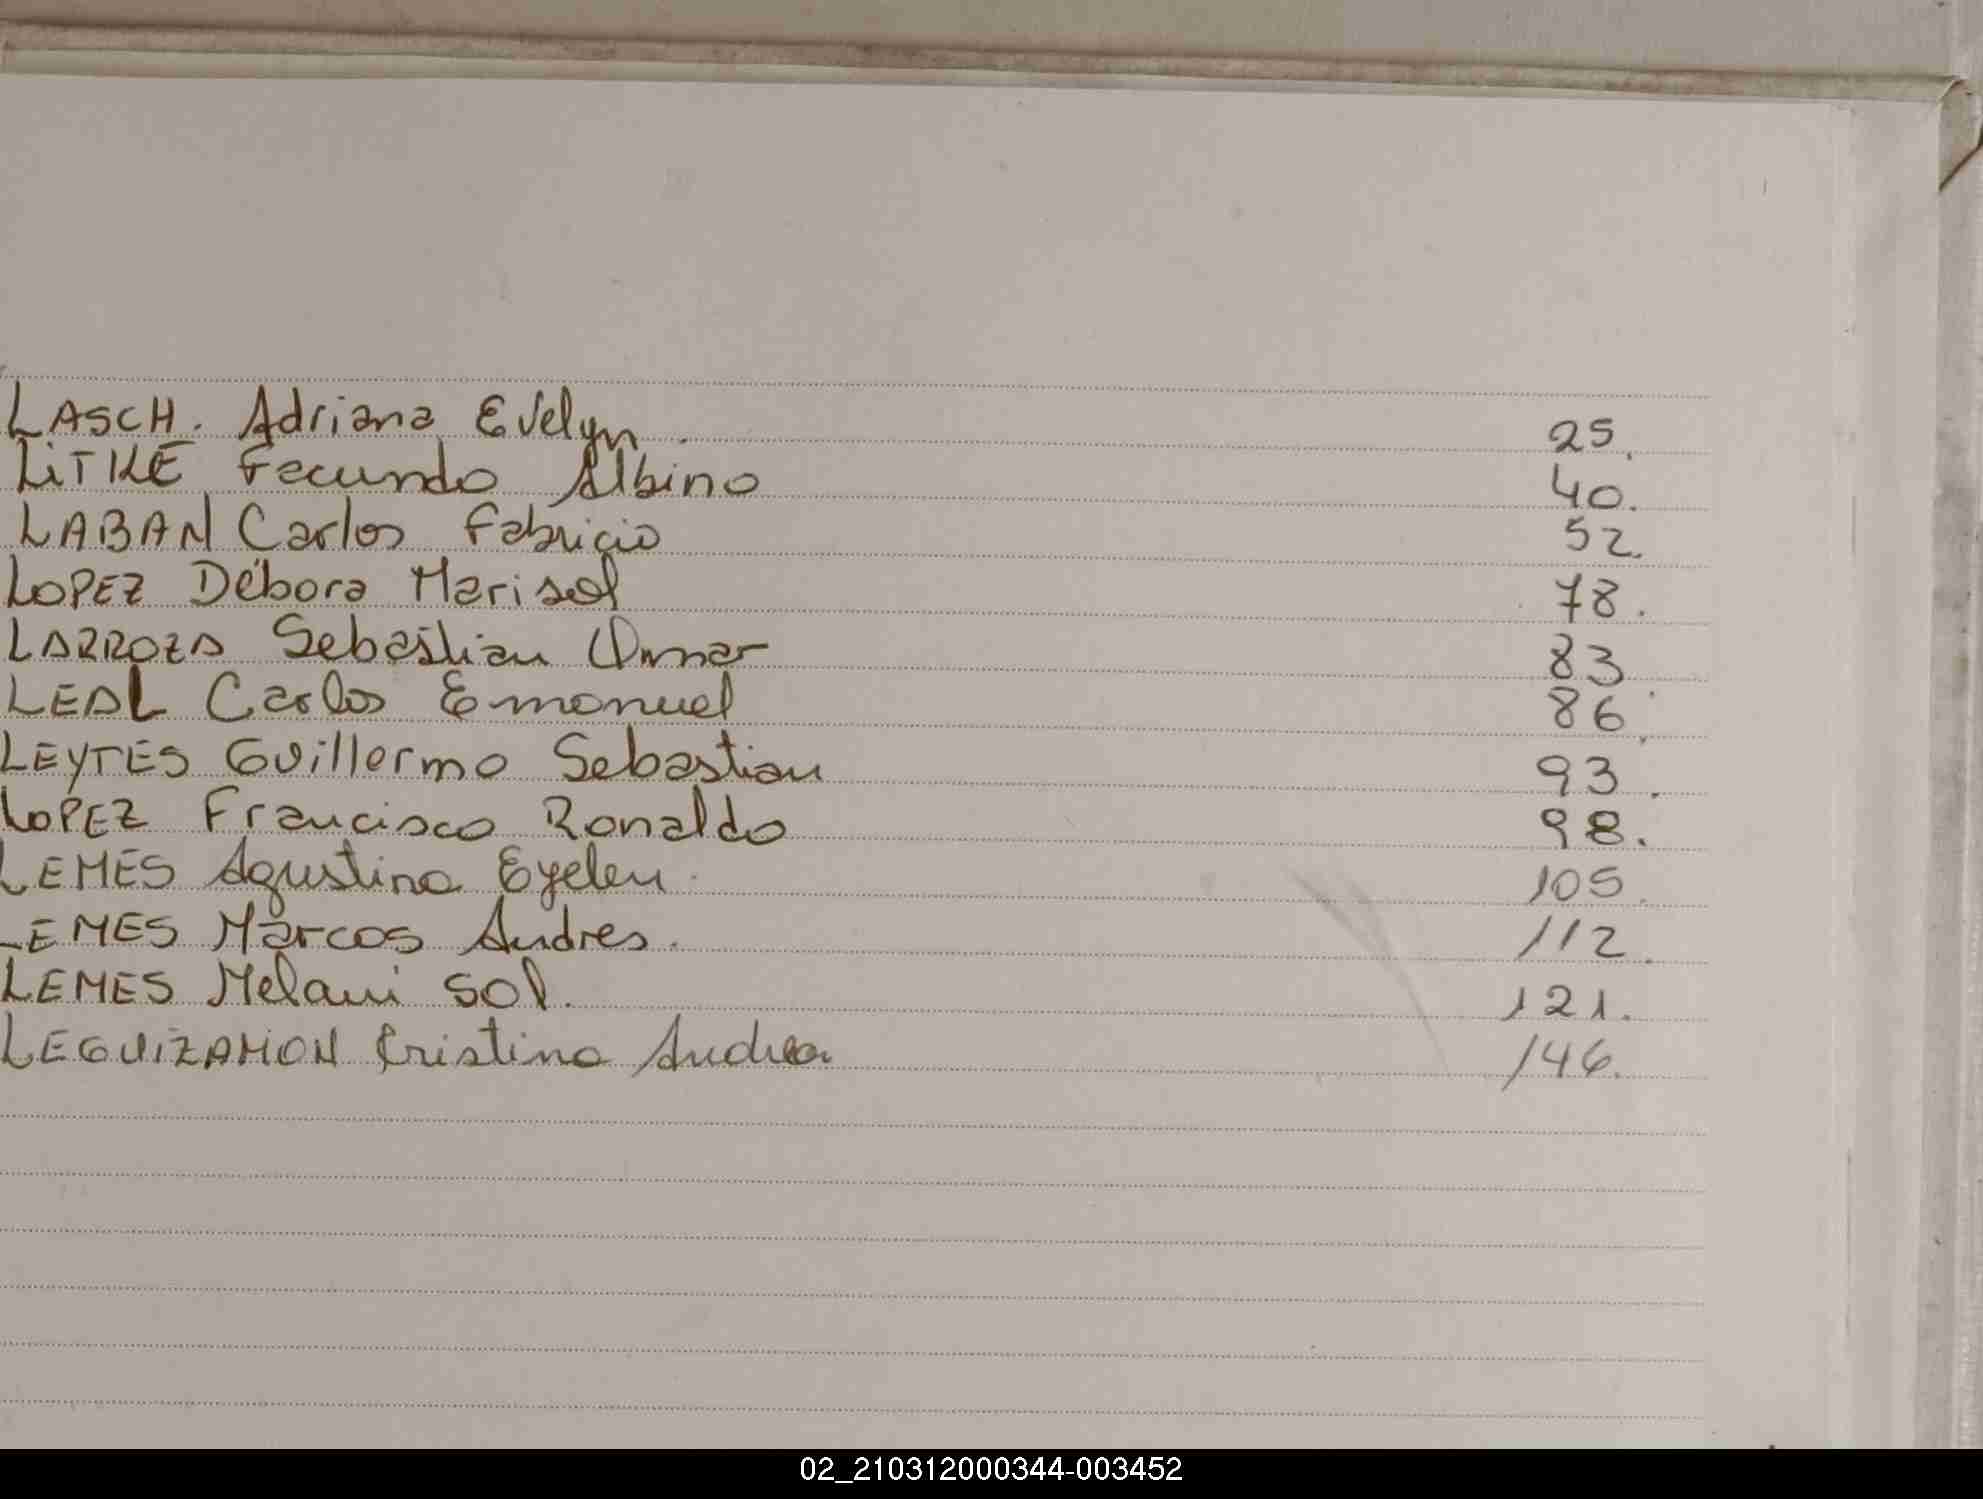 LASCH. Adriana Evelyn. 25.
LiTKE Facundo Albino 40.
LABAN Carlos Fabricio 52.
LOPEZ Débora Marisol 78.
LARROZA Sebastian Omar 83.
LEAL Carlos Emanuel 86.
LEYTES Guillermo Sebastian 93.
LOPEZ Francisco Ronaldo 98.
LEMES Agustina Eyelen. 105.
LEMES Marcos Andres. 112.
LEMES Melani Sol. 121.
LEGUIZAMON Cristina Andrea 146.
02_210312000344-003452